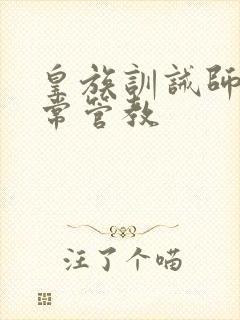 皇族訓誡師
常管教
汪了个喵